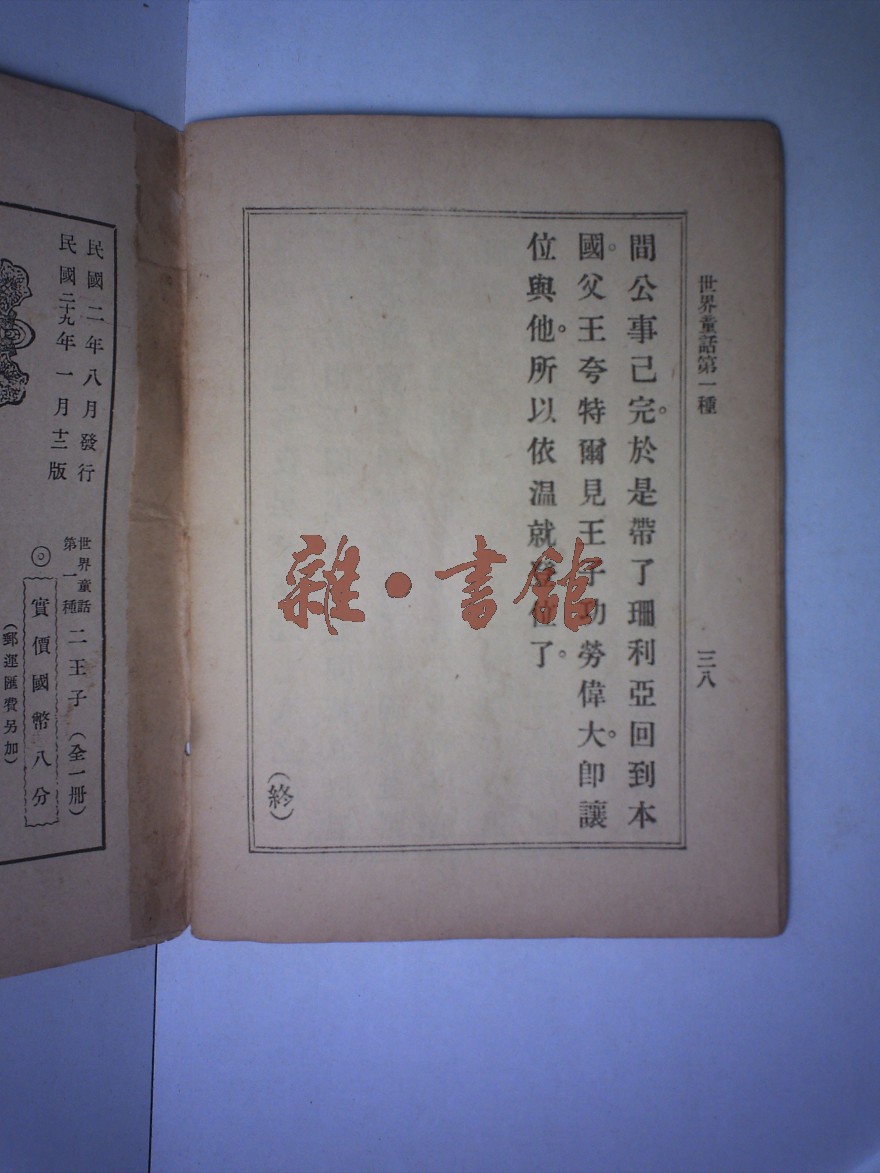 世界童話第一種
三八
間公事已完。於是帶了珊利亞回到本
國。父王夸特爾見王子功勞偉大。卽讓
位與他。所以依温就登位了。
(終)
民國二年八月發行
民國二十九年一月十三版
世界童話第一種
二王子(全一册)
實價國幣八分
(郵運匯費另加)
雜·書館